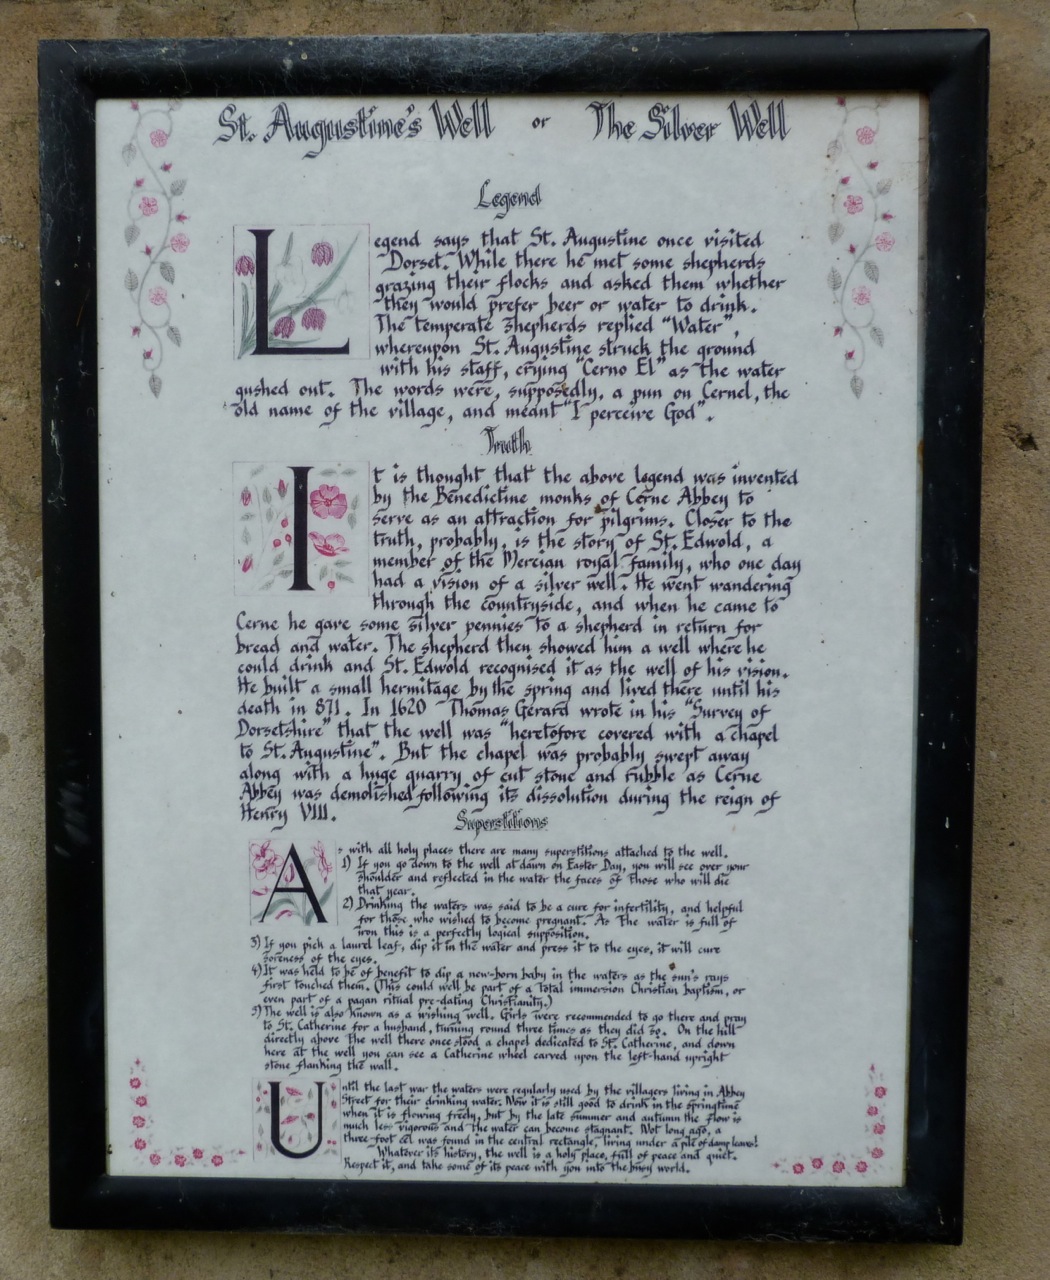 St. Augustine's Well or The Silver Well
Legend
Legend says that St. Augustine once visited
Dorset. While there he met some shepherds
grazing their flocks and asked them whether
they would prefer beer or water to drink.
The temperate shepherds replied "Water",
whereupon St. Augustine struck the ground
with his staff, crying "Cerno El" as the water
gushed out. The words were, supposedly, a pun on Cernel, the
old name of the village, and meant "I perceive God".
Truth
It is thought that the above legend was invented
by the Benedictine monks of Cerne Abbey to
serve as an attraction for pilgrims. Closer to the
truth, probably, is the story of St. Edwold, a
member of the Mercian royal family, who one day
had a vision of a silver well. He went wandering
through the countryside, and when he came to
Cerne he gave some silver pennies to a shepherd in return for
bread and water. The shepherd then showed him a well where he
could drink and St. Edwold recognised it as the well of his vision.
He built a small hermitage by the spring and lived there until his
death in 871. In 1620 Thomas Gerard wrote in his "Survey of
Dorsetshire" that the well was "heretofore covered with a chapel
to St. Augustine". But the chapel was probably swept away
along with a huge quarry of cut stone and rubble as Cerne
Abbey was demolished following its dissolution during the reign of
Henry VIII.
Superstitions
As with all holy places there are many superstitions attached to the well.
1) If you go down to the well at dawn on Easter Day, you will see over your
shoulder and reflected in the water the faces of those who will die
that year.
2) Drinking the waters was said to be a cure for infertility, and helpful
for those who wished to become pregnant. As the water is full of
iron this is a perfectly logical supposition.
3) If you pick a laurel leaf, dip it in the water and press it to the eyes, it will cure
soreness of the eyes.
4) It was held to be of benefit to dip a new-born baby in the waters as the sun's rays
first touched them. (This could well be part of a total immersion Christian baptism, or
even part of a pagan ritual pre-dating Christianity.)
5) The well is also known as a wishing well. Girls were recommended to go there and pray
to St. Catherine for a husband, turning round three times as they did so. On the hill
directly above the well there once stood a chapel dedicated to St. Catherine, and down
here at the well you can see a Catherine wheel carved upon the left-hand upright
stone flanking the wall.
Until the last war the waters were regularly used by the villagers living in Abbey
Street for their drinking water. Now it is still good to drink in the springtime
when it is flowing freely, but by the late summer and autumn the flow is
much less vigorous and the water can become stagnant. Not long ago, a
three-foot eel was found in the central rectangle, living under a pile of damp leaves!
Whatever its history, the well is a holy place, full of peace and quiet.
Respect it, and take some of its peace with you into the busy world.